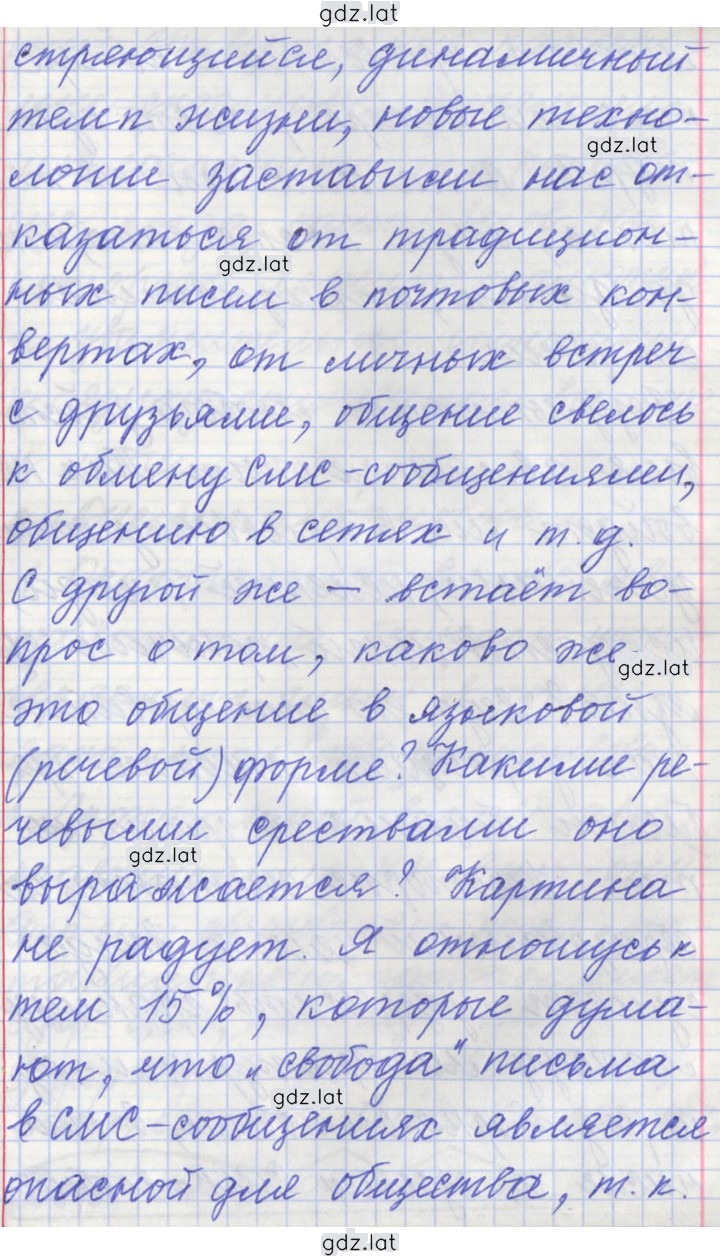 gdz.lat
стряющийся, динамичный
темп жизни, новые техно-
gdz.lat
логии заставили нас от-
казаться от традицион-
gdz.lat
ных писем в почтовых кон-
вертах, от личных встреч
с друзьями, общение свелось
к обмену СМС-сообщениями,
общению в сетях и т.д.
С другой же – встаёт во-
прос о том, каково же
gdz.lat
это общение в языковой
(речевой) форме? Какими ре-
чевыми срествами оно
gdz.lat
выражается? Картина
не радует. Я отношусь к
тем 15%, которые дума-
ют, что „свобода“ письма
gdz.lat
в СМС-сообщениях является
опасной для общества, т.к.
gdz.lat